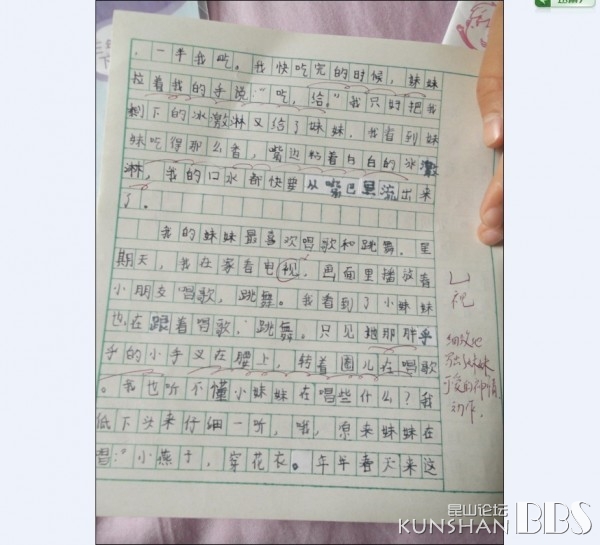 ，一半我吃。我快吃完的时候，妹妹
拉着我的手说：“吃，给。”我只好把我
剩下的冰激淋又给了妹妹。我看到妹
妹吃得那么香，嘴边粘着白白的冰激
淋，我的口水都快要从嘴巴里流出来
了。
我的妹妹最喜欢唱歌和跳舞。星
期天，我在家看电视，画面里播放着
小朋友唱歌，跳舞。我看到了小妹妹
也在跟着唱歌，跳舞。只见她那胖乎
乎的小手叉在腰上，转着圈儿在唱歌
。我也听不懂小妹妹在唱些什么？我
低下头来仔细一听，哦，原来妹妹在
唱：“小燕子，穿花衣。年年春天来这
视
细致地
妹妹
的神情
动作.
昆山论坛
KUNSHAN BBS